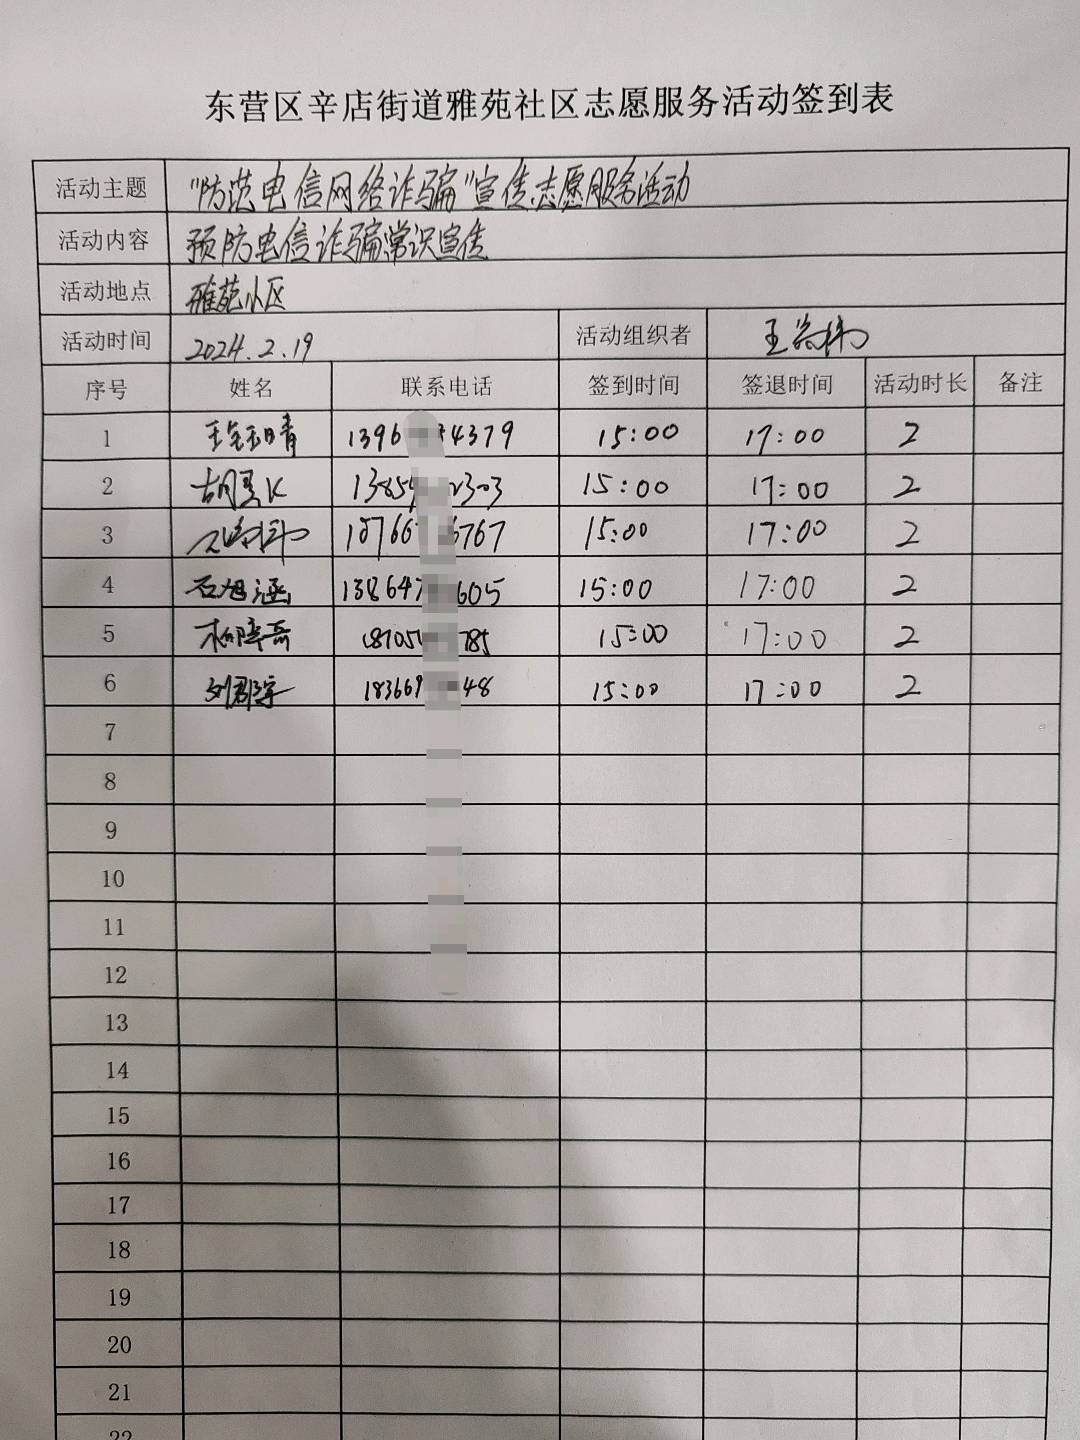 东营区辛店街道雅苑社区志愿服务活动签到表
活动主题 "防范电信网络诈骗"宣传志愿服务活动
活动内容 预防电信诈骗常识宣传
活动地点 雅苑小区
活动时间 2024.2.19 活动组织者 王
序号 姓名 联系电话 签到时间 签退时间 活动时长 备注
1 1396 4379 15:00 17:00 2
2 胡 1385 2303 15:00 17:00 2
3 18766 6767 15:00 17:00 2
4 石旭涵 13864 605 15:00 17:00 2
5 18705 785 15:00 17:00 2
6 刘郡宇 183669 48 15:00 17:00 2
7
8
9
10
11
12
13
14
15
16
17
18
19
20
21
22